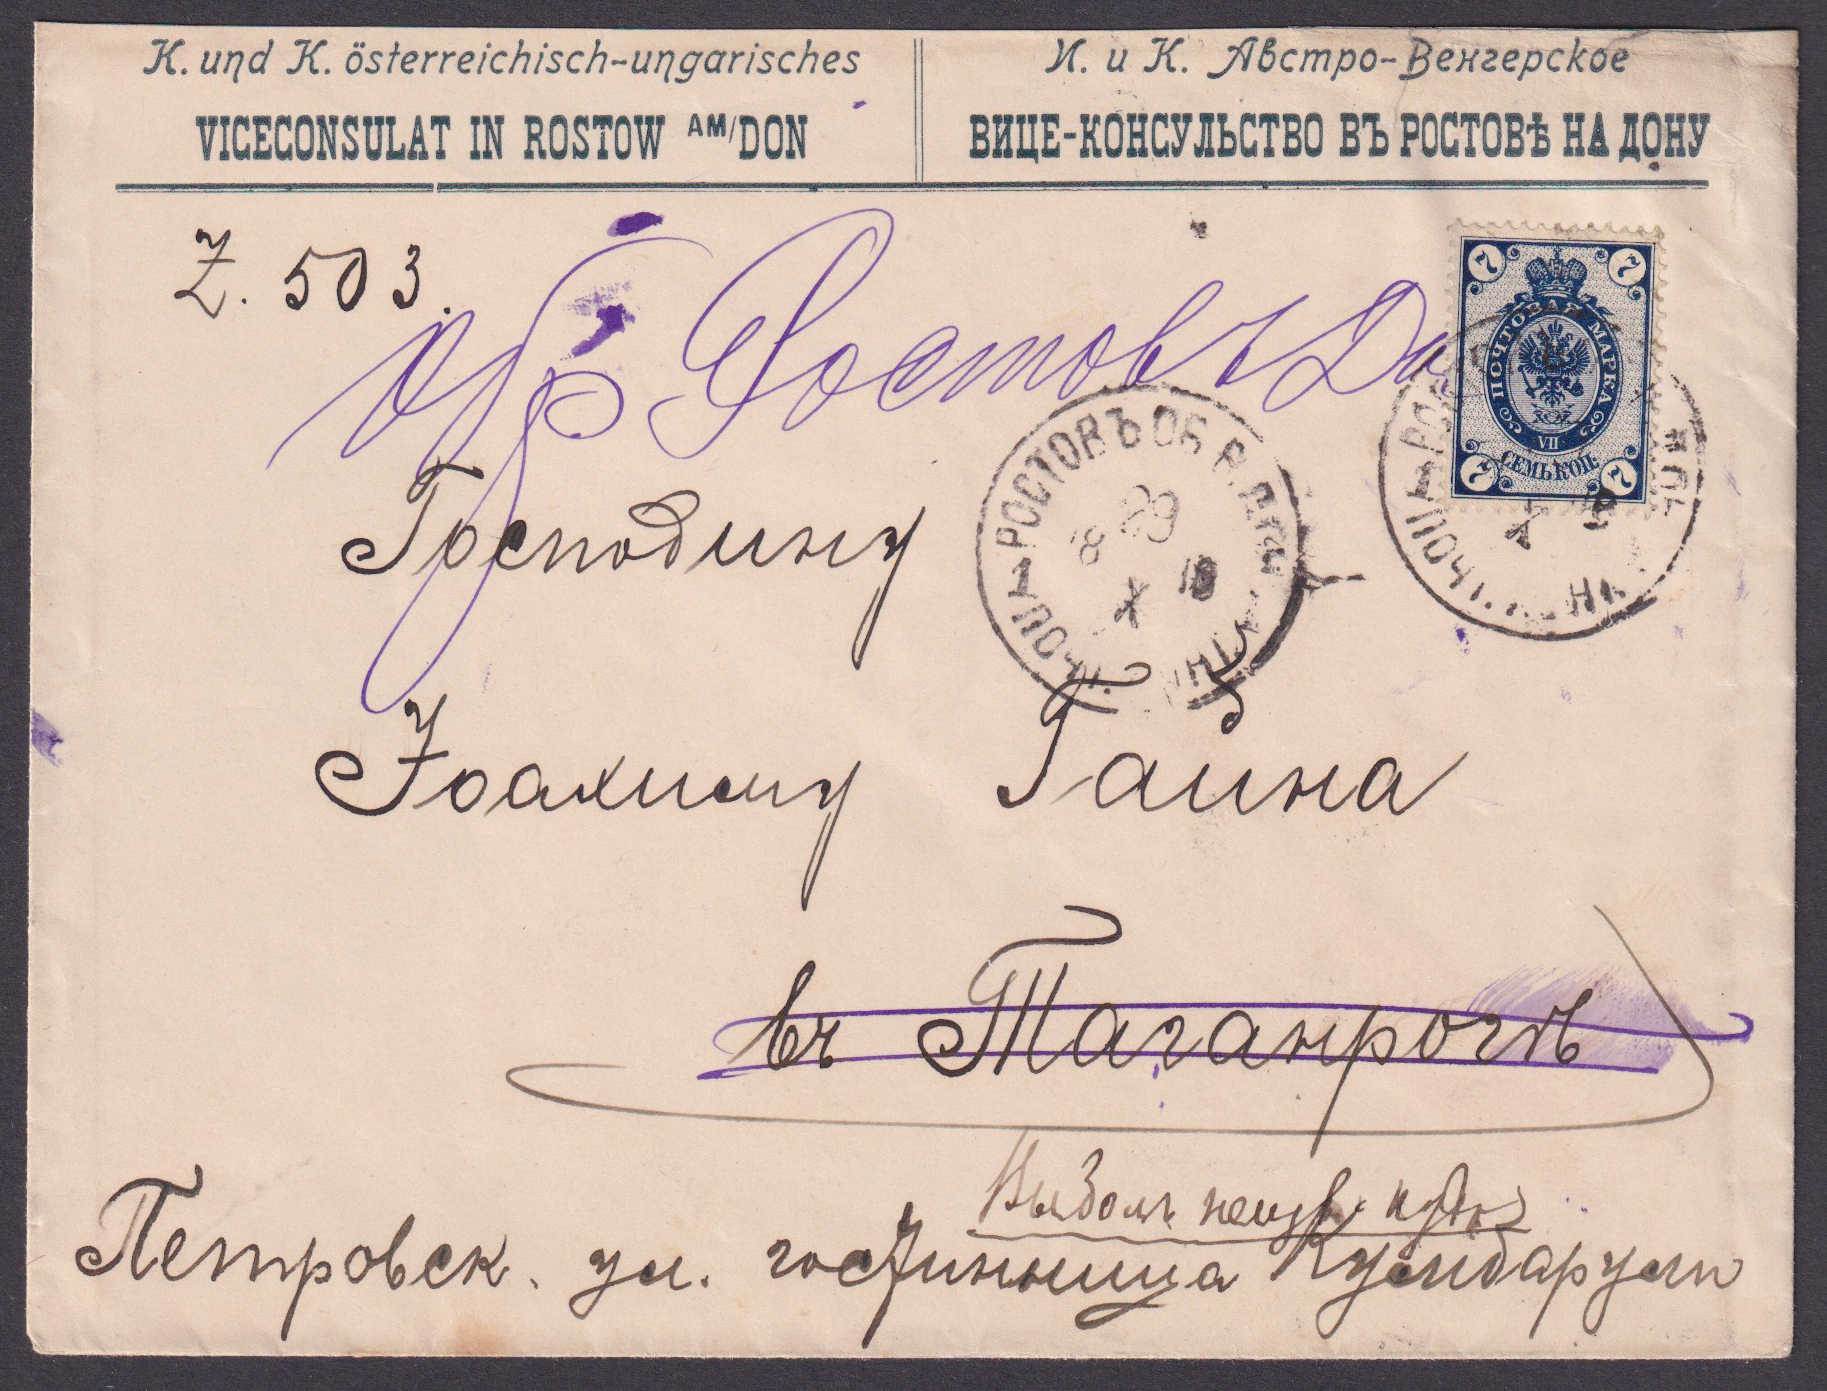 K. und K. österreichisch-ungarisches
VICECONSULAT IN ROSTOW AM/DON
И. и К. Австро-Венгерское
ВИЦЕ-КОНСУЛЬСТВО ВЪ РОСТОВѢ НА ДОНУ
Z. 503.
Обр Ростовъ Дон
7 7
ПОЧТОВАЯ МАРКА
VII
СЕМЬ КОП.
7 7
РОСТОВЪ ОБ. В. ДОН.
29
X 10
Господину
Іоахиму Гайна
въ Таганрогѣ
Выбылъ неизв. куда
Петровск. ул. гостинница